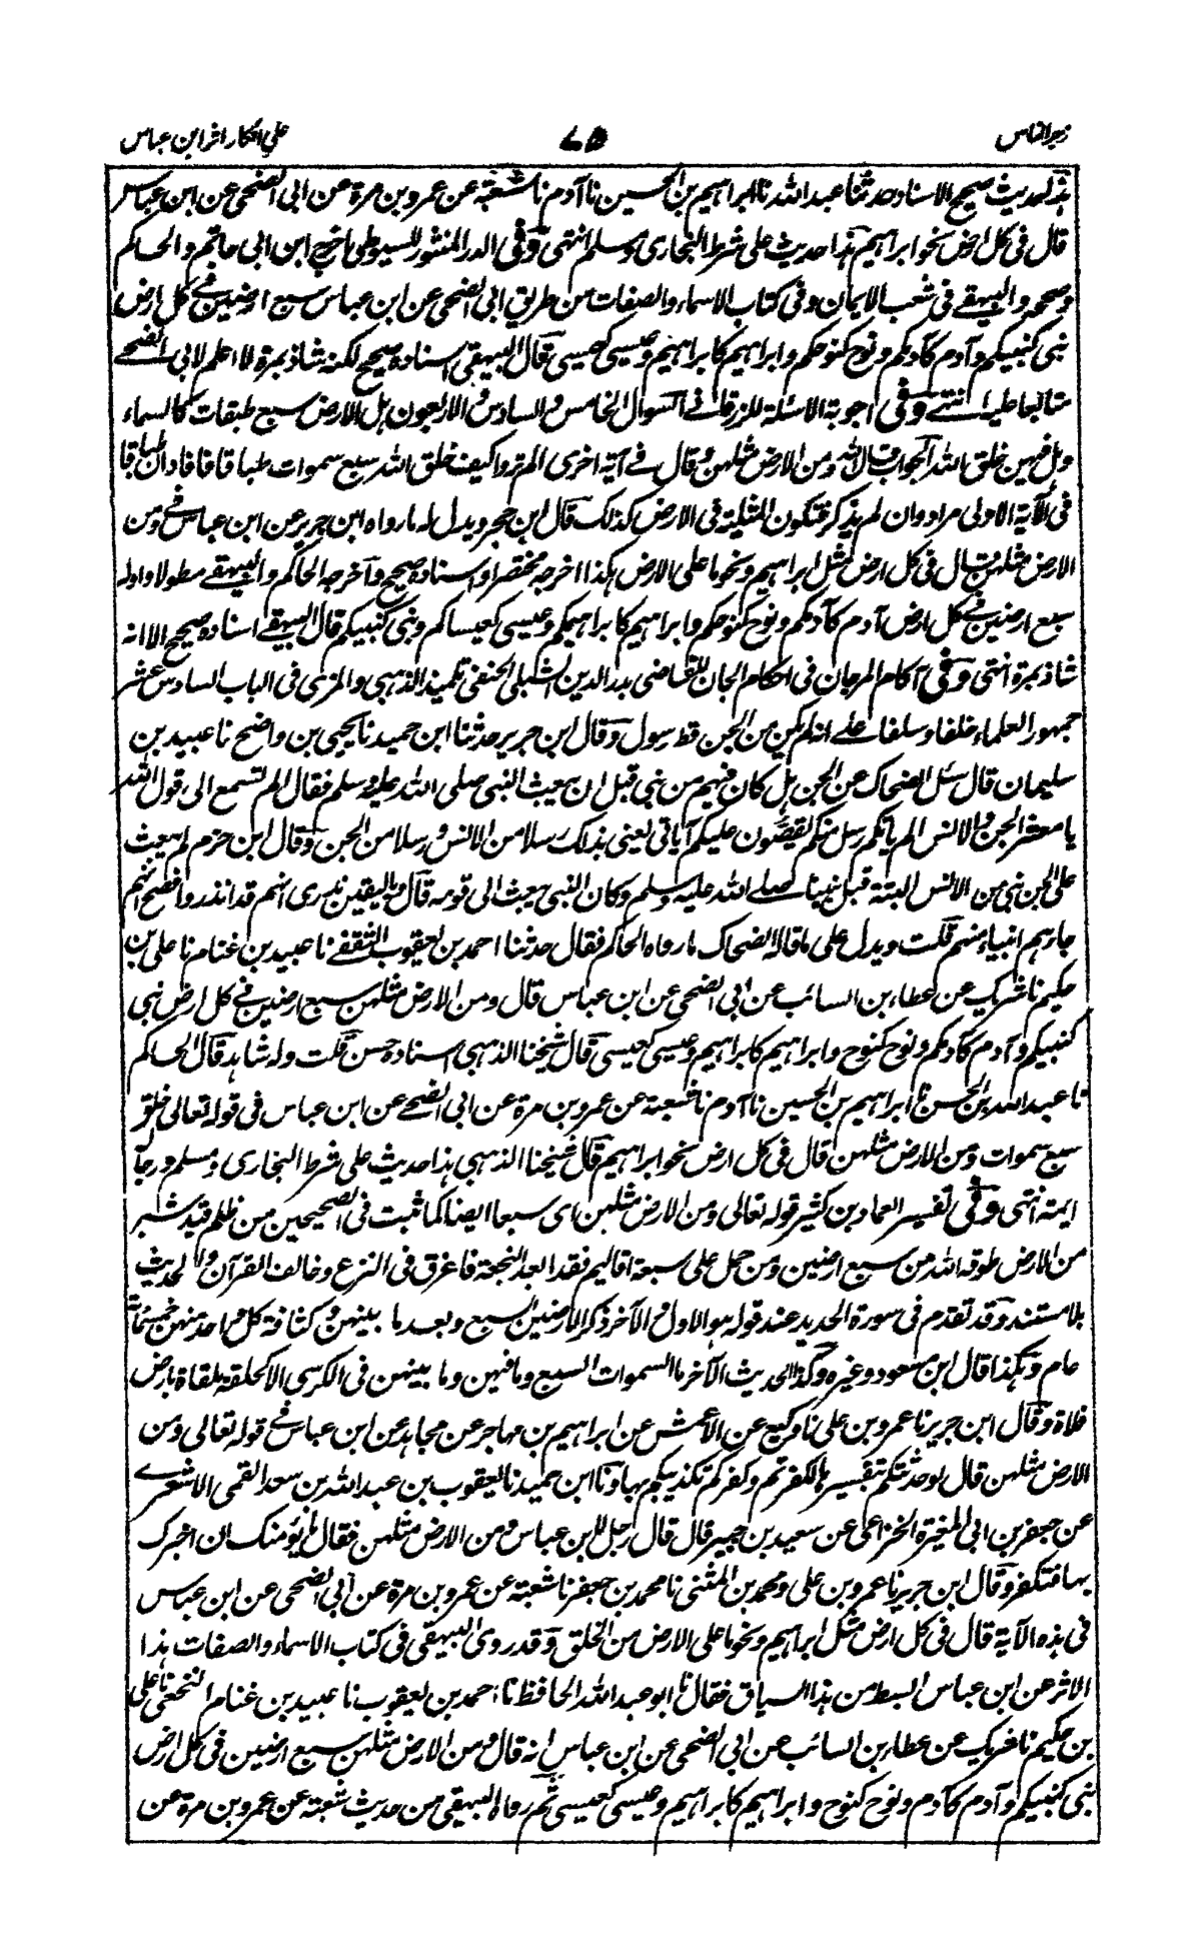 زجر الناس ٧٥ علي انكار اثر ابن عباس
هذا حديث صحيح الاسناد حدثنا عبد الله نا ابراهيم بن الحسين نا آدم نا شعبة عن عمرو بن مرة عن ابى الضحى عن ابن عباس
قال فى كل ارض نحو ابراهيم هذا حديث على شرط البخارى ومسلم انتهى وفى الدر المنثور للسيوطى اخرج ابن ابى حاتم والحاكم
وصححه والبيهقے فى شعب الايمان وفى كتاب الاسماء والصفات من طريق ابى الضحى عن ابن عباس سبع ارضين فے كل ارض
نبى كنبيكم وآدم كآدمكم ونوح كنوحكم وابراهيم كابراهيم وعيسى كعيسى قال البيهقى اسناده صحيح لكنه شاذ بمرة لا اعلم لابى الضحے
متابعا عليه انتهے وفى اجوبة الاسئلة للزرقانے السوال الخامس والسادس والاربعون هل الارض سبع طبقات كالسماء
وهل فيهن خلق الله الجواب قال الله ومن الارض مثلهن وقال فے آية اخرى الم تروا كيف خلق الله سبع سموات طباقا فافاد ان طباقا
فى الآية الاولى مراد وان لم يذكر فتكون المثلية فى الارض كذلك قال ابن حجر ويدل له ما رواه ابن جرير عن ابن عباس فے ومن
الارض مثلهن قال فى كل ارض مثل ابراهيم ونحو ما على الارض هكذا اخرجه مختصرا واسناده صحيح وآخرجه الحاكم والبيهقے مطولا واوله
سبع ارضين فے كل ارض آدم كآدمكم ونوح كنوحكم وابراهيم كابراهيمكم وعيسى كعيساكم ونبى كنبيكم قال البيهقے اسناده صحيح الا انه
شاذ بمرة انتهى وفى آكام المرجان فى احكام الجان للقاضى بدر الدين الشبلى الحنفى تلميذ الذهبى والمزى فى الباب السادس عشر
جمهور العلماء خلفا وسلفا علے انه لم يكن من الجن قط رسول وقال ابن جرير حدثنا ابن حميد نا يحيى بن واضح نا عبيد بن
سليمان قال سئل الضحاك عن الجن هل كان فيهم من نبى قبل ان يبعث النبى صلى الله عليه وسلم فقال الم تسمع الى قول الله
يا معشر الجن والانس الم ياتكم رسل منكم يقصون عليكم آياتى يعنى بذلك رسلا من الانس ورسلا من الجن وقال ابن حزم لم يبعث
على الجن نبى من الانس البتة قبل نبينا صلے الله عليه وسلم وكان النبى يبعث الى قومه قال وباليقين ندرى انهم قد انذروا فصح انهم
جاءهم انبياء منهم قلت ويدل على ما قاله الضحاك ما رواه الحاكم فقال حدثنا احمد بن يعقوب الثقفے نا عبيد بن غنام نا على بن
حكيم نا شريك عن عطاء بن السائب عن ابى الضحى عن ابن عباس قال ومن الارض مثلهن سبع ارضين فے كل ارض نبى
كنبيكم وآدم كآدمكم ونوح كنوح وابراهيم كابراهيم وعيسى كعيسى قال شيخنا الذهبى اسناده حسن قلت وله شاهد قال الحاكم
نا عبد الله بن الحسن نا ابراهيم بن الحسين نا آدم نا شعبة عن عمرو بن مرة عن ابى الضحے عن ابن عباس فى قوله تعالى خلق
سبع سموات ومن الارض مثلهن قال فى كل ارض نحو ابراهيم قال شيخنا الذهبى هذا حديث على شرط البخارى ومسلم ورجاله
ايمة انتهى وفى تفسير العماد بن كثير قوله تعالى ومن الارض مثلهن اى سبعا ايضا كما ثبت فى الصحيحين من ظلم قيد شبر
من الارض طوقه الله من سبع ارضين ومن حمل على سبعة اقاليم فقد ابعد النجعة فاغرق فى النزع وخالف القرآن والحديث
بلا مستند وقد تقدم فى سورة الحديد عند قوله هو الاول والآخر ذكر الارضين السبع وبعد ما بينهن وكثافة كل واحد منهن خمسمائة
عام وهكذا قال ابن مسعود وغيره وكذا الحديث الآخر ما السموات السبع وما فيهن وما بينهن فى الكرسى الا كحلقة ملقاة بارض
فلاة وقال ابن جرير نا عمرو بن على نا وكيع عن الاعمش عن ابراهيم بن مهاجر عن مجاهد عن ابن عباس فے قوله تعالى ومن
الارض مثلهن قال لو حدثتكم بتفسيرها لكفرتم وكفركم تكذيبكم بها ونا ابن حميد نا يعقوب بن عبد الله بن سعد القمى الاشعرے
عن جعفر بن ابى المغيرة الخزاعى عن سعيد بن جبير قال قال رجل لابن عباس ومن الارض مثلهن فقال ما يؤمنك ان اخبرك
بها فتكفر وقال ابن جرير نا عمرو بن على ومحمد بن المثنى نا محمد بن جعفر نا شعبة عن عمرو بن مرة عن ابى الضحى عن ابن عباس
فى هذه الآية قال فى كل ارض مثل ابراهيم ونحو ما على الارض من الخلق وقد روى البيهقى فى كتاب الاسماء والصفات هذا
الاثر عن ابن عباس ابسط من هذا السياق فقال نا ابو عبد الله الحافظ نا احمد بن يعقوب نا عبيد بن غنام النخعى نا على
بن حكيم نا شريك عن عطاء بن السائب عن ابى الضحى عن ابن عباس انه قال ومن الارض مثلهن سبع ارضين فى كل ارض
نبى كنبيكم وآدم كآدم ونوح كنوح وابراهيم كابراهيم وعيسى كعيسى ثم رواه البيهقى من حديث شعبة عن عمرو بن مرة عن